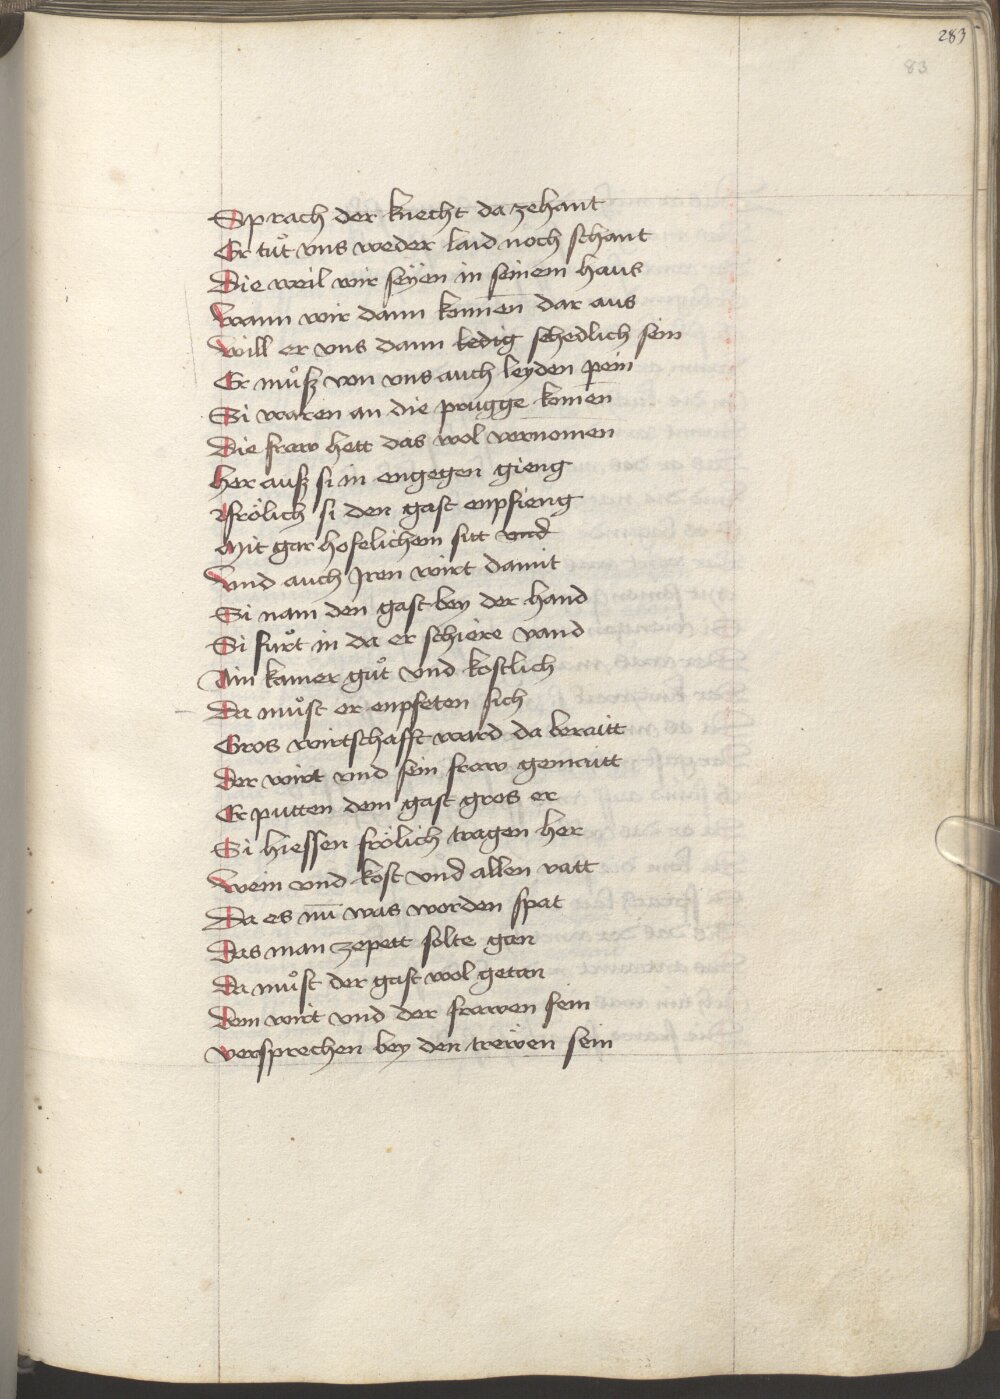 283
83
Sprach der knecht da zehant
Er tuͦt vns weder laid noch schant
Die weil wir seÿen in seinem haus
Wann wir dann komen̄ dar aus
Will er vns dann ledig schedlich sein
Er muͦsz von vns auch leyden pein
Si waren an die prugge komen̄
Die fraw hett das wol vernomen
Her ausz si in engegen gieng
Frölich si den gast enpfieng
Mit gar hofelichem sitt vnd
Vnd auch Jren wirt damit
Si nam den gast bey der hand
Si fuͦrt in da er schiere vand
Ain kamer guͦt vnd kostlich
Da muͦst er enpfeten sich
Gros wirtschafft ward da beraitt
Der wirt vnd sein fraw gemaitt
Er putten dem gast gros er
Si hiessen frölich tragen her
Wein vnd kost vnd allen ratt
Da es nū was worden spat
Das man zepett solte gan
Da muͦst der gast wol getan
Dem wirt vnd der frawen sein
Versprechen bey den trewen sein